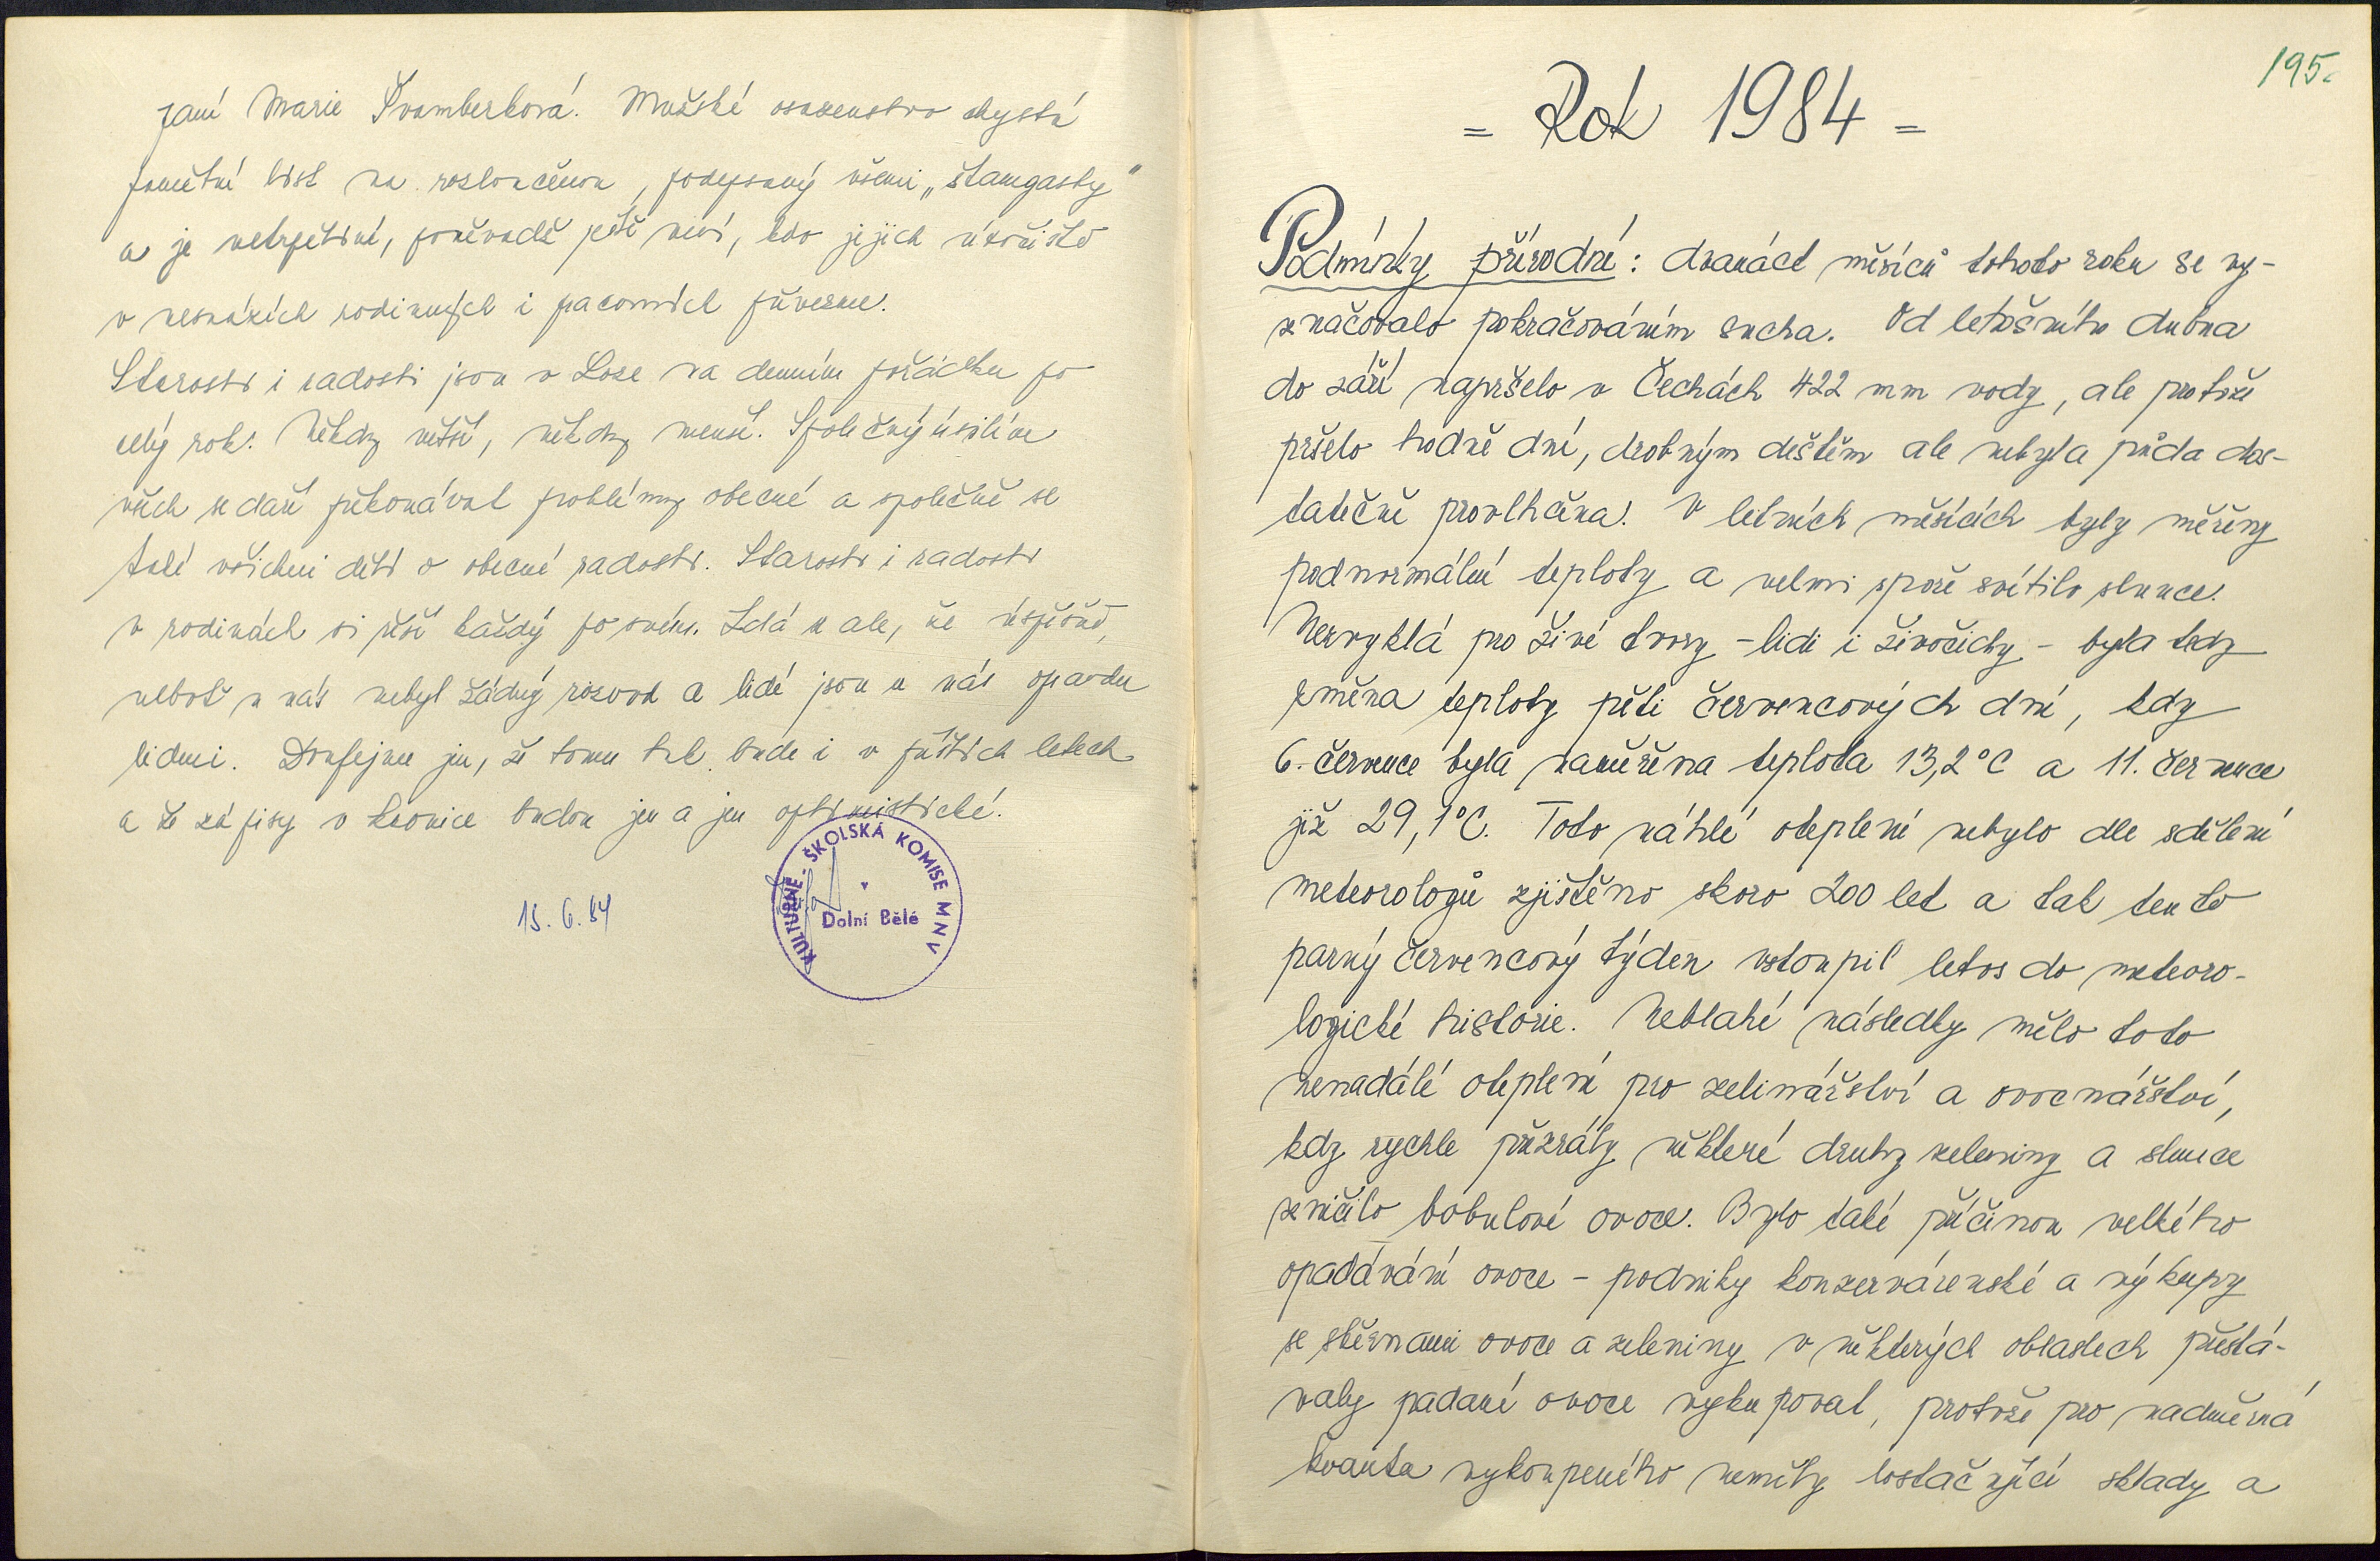 paní Marie Švamberková. Mužské osazenstvo chystá
pamětní list na rozloučenou, podepsaný všemi „štamgasty"
a je netrpělivé, poněvadž ještě neví, kdo jejich útočiště
v nesnázích rodinných i pracovních převezme.
Starosti i radosti jsou v Loze na denním pořádku po
celý rok. Někdy větší, někdy menší. Společným úsilím
všech se daří překonávat problémy obecné a společně se
také všichni dělí o obecné radosti. Starosti i radosti
v rodinách si řeší každý po svém. Zdá se ale, že úspěšně,
neboť u nás nebyl žádný rozvod a lidé jsou u nás opravdu
lidmi. Doufejme jen, že tomu tak bude i v příštích letech
a že zápisy v kronice budou jen a jen optimistické.
15. 6. 84
KULTURNĚ - ŠKOLSKÁ KOMISE MNV
v
Dolní Bělé
195.
= Rok 1984 =
Podmínky přírodní: dvanáct měsíců tohoto roku se vy-
značovalo pokračováním sucha. Od letošního dubna
do září napršelo v Čechách 422 mm vody, ale protože
pršelo hodně dní, drobným deštěm ale nebyla půda dos-
tatečně provlhčena. V letních měsících byly měřeny
podnormální teploty a velmi spoře svítilo slunce.
Nezvyklá pro živé tvory - lidi i živočichy - byla tedy
změna teploty pěti červencových dní, kdy
6. července byla naměřena teplota 13,2°C a 11. července
již 29,1°C. Toto náhlé oteplení nebylo dle sdělení
meteorologů zjištěno skoro 200 let a tak tento
parný červencový týden vstoupil letos do meteoro-
logické historie. Neblahé následky mělo toto
nenadálé oteplení pro zelinářství a ovocnářství,
kdy rychle přezrály některé druhy zeleniny a slunce
zničilo bobulové ovoce. Bylo také příčinou velkého
opadávání ovoce - podniky konzervárenské a výkupy
se sběrnami ovoce a zeleniny v některých oblastech přestá-
valy padané ovoce vykupovat, protože pro nadměrná
kvanta vykoupeného neměly dostačující sklady a